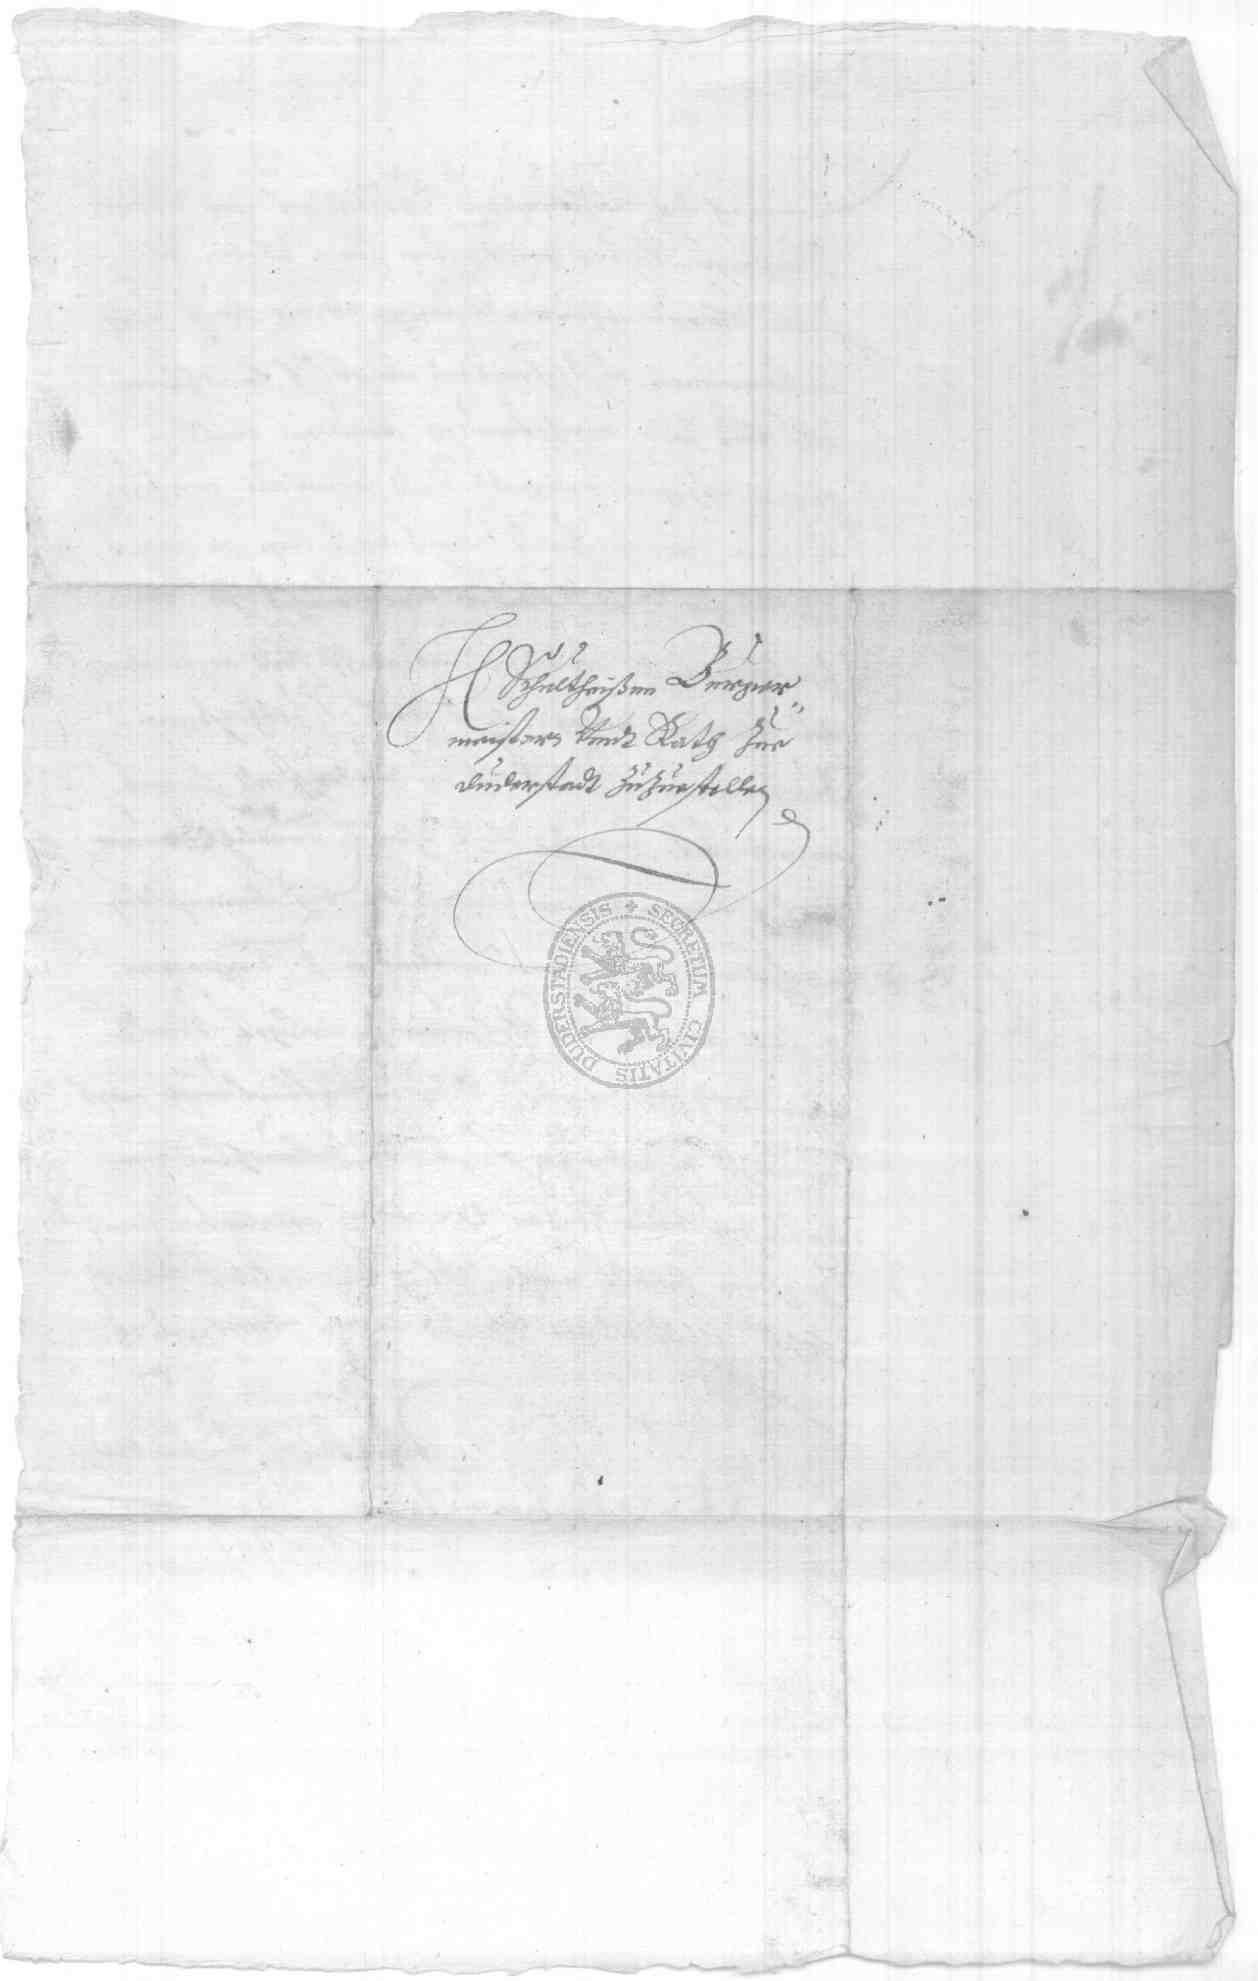 H Schultheißen Bürger
meistern Undt Rath Zue
Duderstadt Zu Zuestellen
SECRETUM CIVITATIS DUDERSTADIENSIS